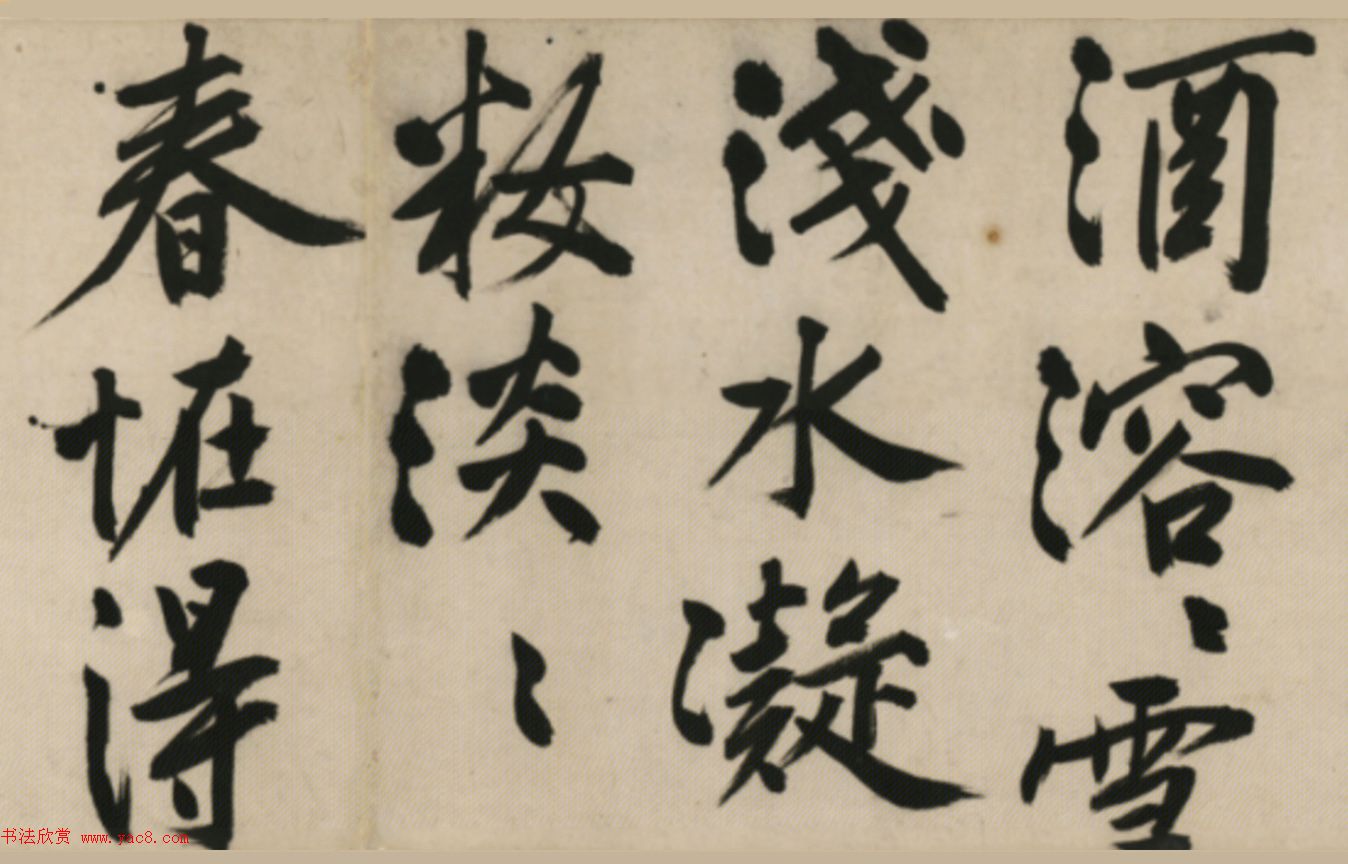 酒溶々雪
淺水凝
籹淡々
春堆得
书法欣赏 www.yac8.com